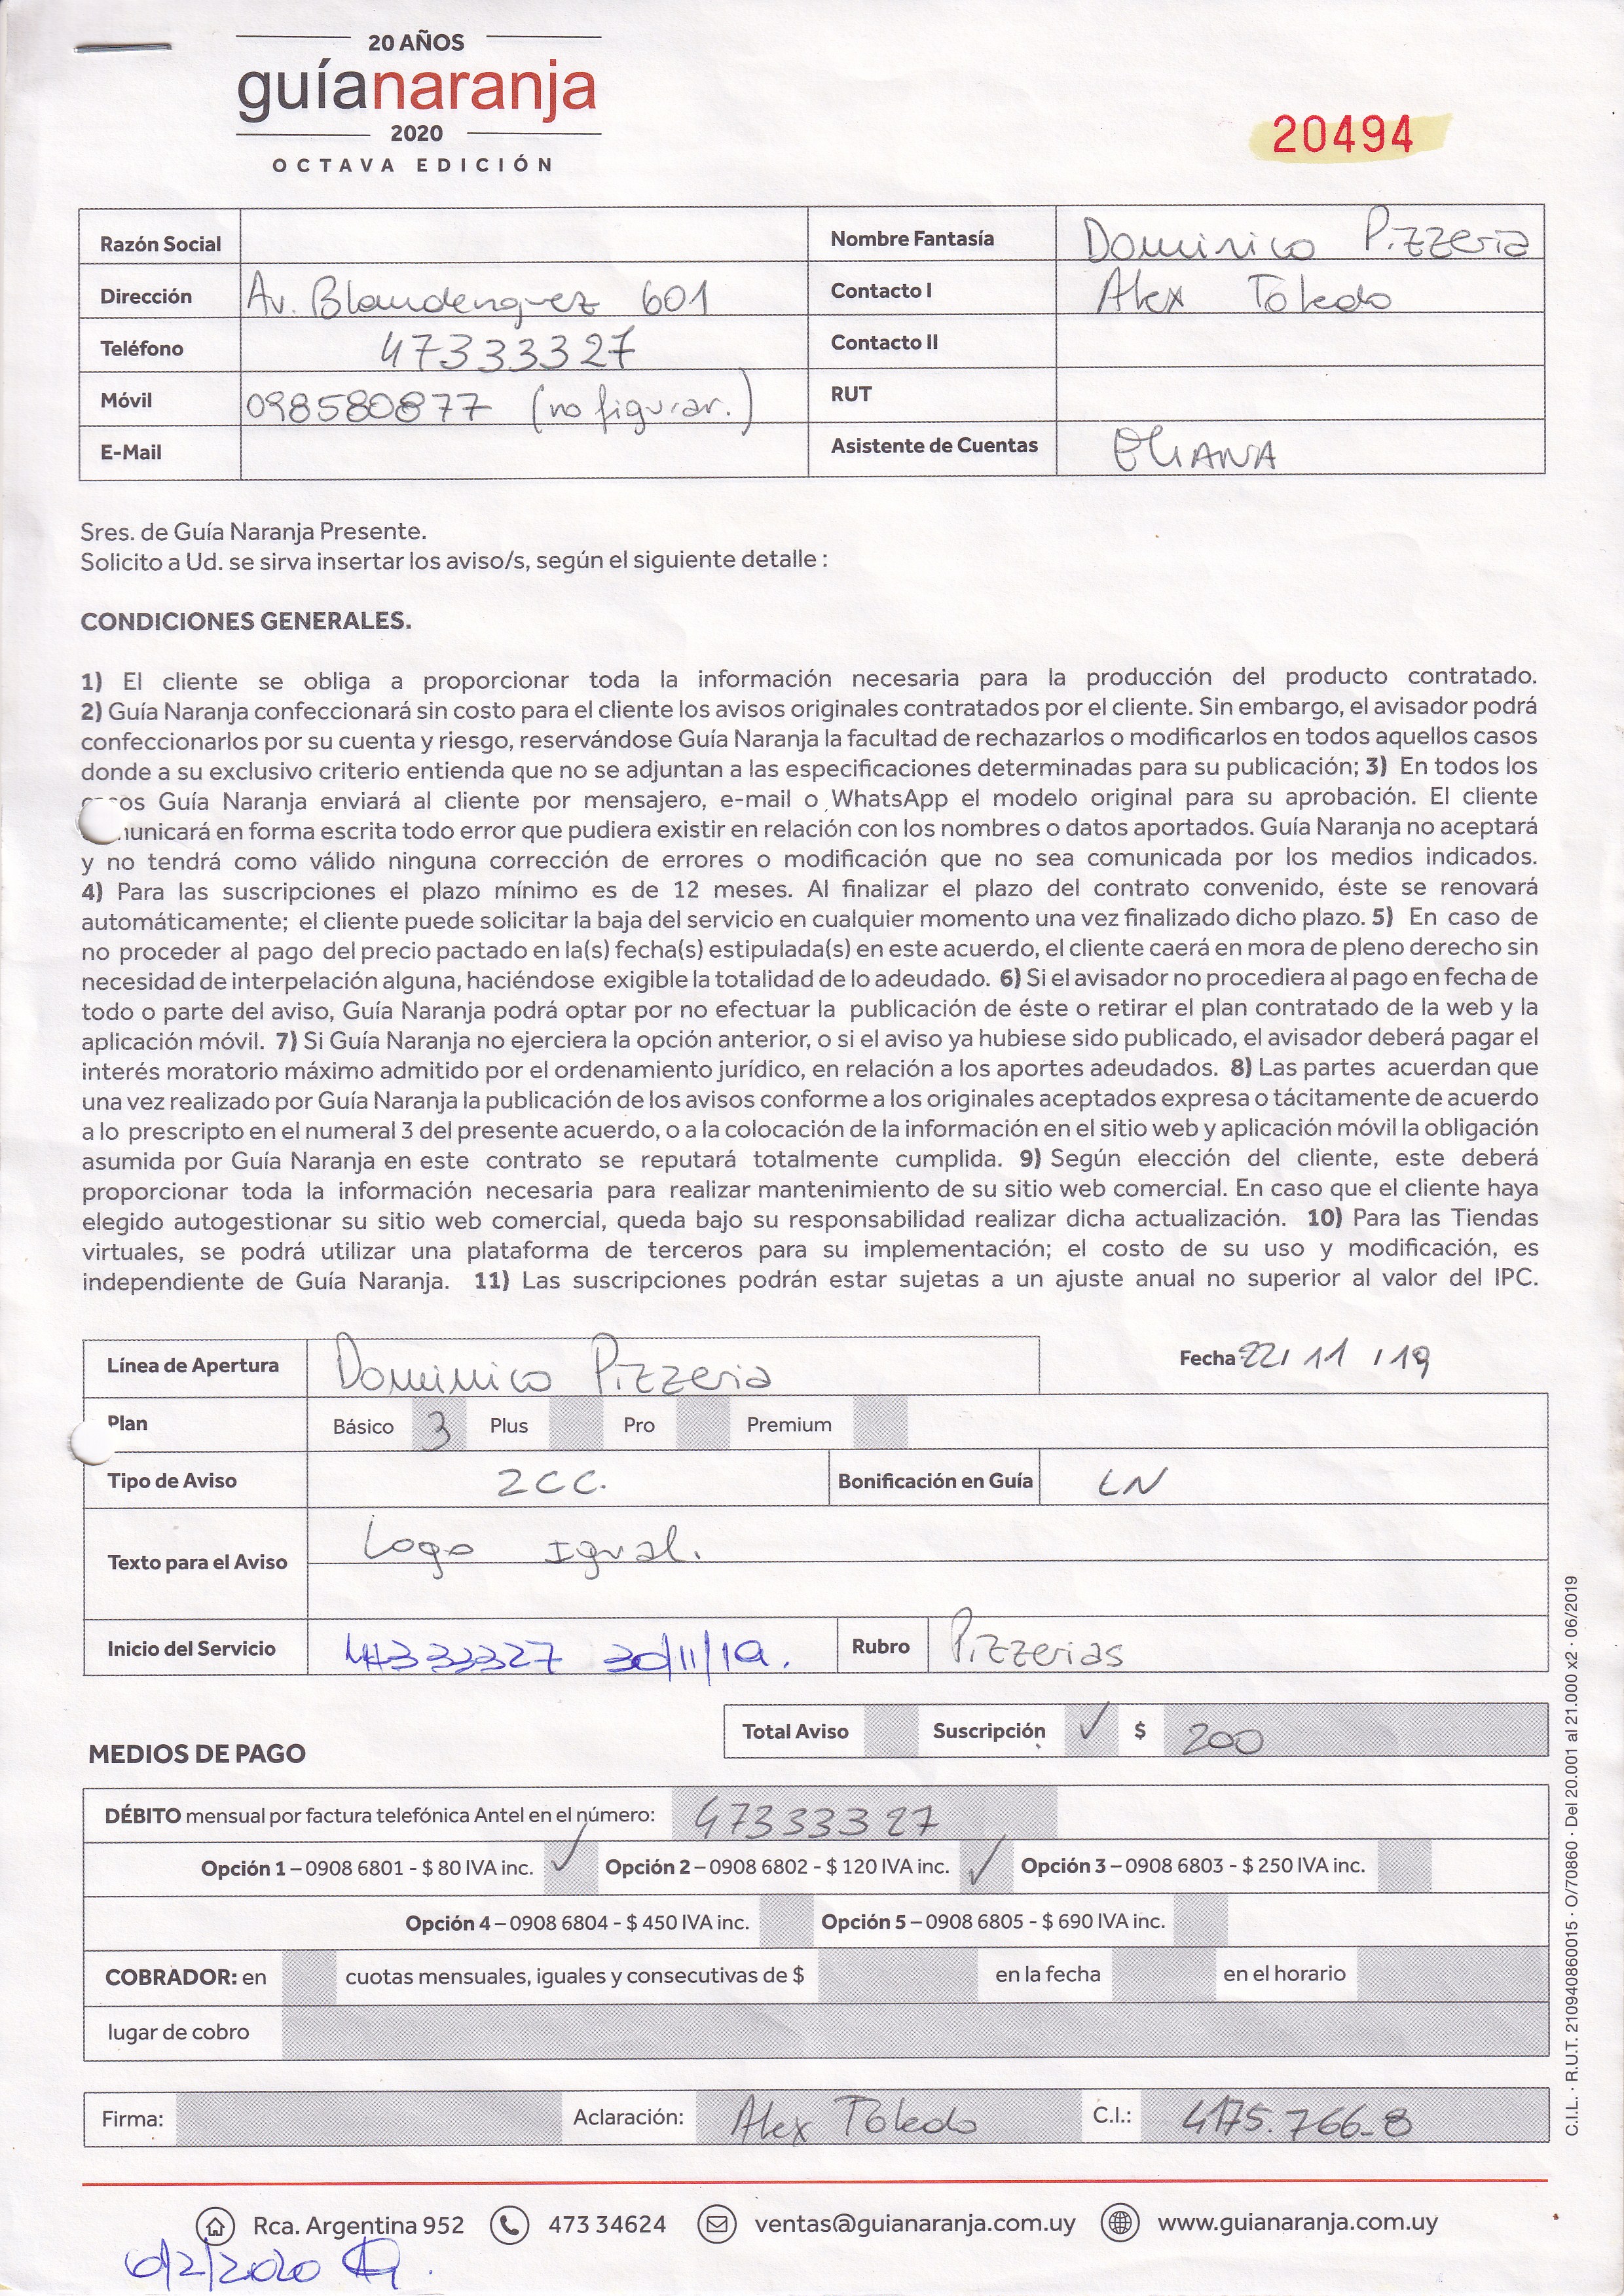 20 AÑOS
guíanaranja
2020
OCTAVA EDICIÓN
20494
Razón Social
Nombre Fantasía Dominico Pizzeria
Dirección Av. Blandenguez 601
Contacto I Alex Toledo
Teléfono 47333327
Contacto II
Móvil 098580877 (no figurar.)
RUT
E-Mail
Asistente de Cuentas EliANA
Sres. de Guía Naranja Presente.
Solicito a Ud. se sirva insertar los aviso/s, según el siguiente detalle :
CONDICIONES GENERALES.
1) El cliente se obliga a proporcionar toda la información necesaria para la producción del producto contratado.
2) Guía Naranja confeccionará sin costo para el cliente los avisos originales contratados por el cliente. Sin embargo, el avisador podrá
confeccionarlos por su cuenta y riesgo, reservándose Guía Naranja la facultad de rechazarlos o modificarlos en todos aquellos casos
donde a su exclusivo criterio entienda que no se adjuntan a las especificaciones determinadas para su publicación; 3) En todos los
casos Guía Naranja enviará al cliente por mensajero, e-mail o WhatsApp el modelo original para su aprobación. El cliente
municará en forma escrita todo error que pudiera existir en relación con los nombres o datos aportados. Guía Naranja no aceptará
y no tendrá como válido ninguna corrección de errores o modificación que no sea comunicada por los medios indicados.
4) Para las suscripciones el plazo mínimo es de 12 meses. Al finalizar el plazo del contrato convenido, éste se renovará
automáticamente; el cliente puede solicitar la baja del servicio en cualquier momento una vez finalizado dicho plazo. 5) En caso de
no proceder al pago del precio pactado en la(s) fecha(s) estipulada(s) en este acuerdo, el cliente caerá en mora de pleno derecho sin
necesidad de interpelación alguna, haciéndose exigible la totalidad de lo adeudado. 6) Si el avisador no procediera al pago en fecha de
todo o parte del aviso, Guía Naranja podrá optar por no efectuar la publicación de éste o retirar el plan contratado de la web y la
aplicación móvil. 7) Si Guía Naranja no ejerciera la opción anterior, o si el aviso ya hubiese sido publicado, el avisador deberá pagar el
interés moratorio máximo admitido por el ordenamiento jurídico, en relación a los aportes adeudados. 8) Las partes acuerdan que
una vez realizado por Guía Naranja la publicación de los avisos conforme a los originales aceptados expresa o tácitamente de acuerdo
a lo prescripto en el numeral 3 del presente acuerdo, o a la colocación de la información en el sitio web y aplicación móvil la obligación
asumida por Guía Naranja en este contrato se reputará totalmente cumplida. 9) Según elección del cliente, este deberá
proporcionar toda la información necesaria para realizar mantenimiento de su sitio web comercial. En caso que el cliente haya
elegido autogestionar su sitio web comercial, queda bajo su responsabilidad realizar dicha actualización. 10) Para las Tiendas
virtuales, se podrá utilizar una plataforma de terceros para su implementación; el costo de su uso y modificación, es
independiente de Guía Naranja. 11) Las suscripciones podrán estar sujetas a un ajuste anual no superior al valor del IPC.
Línea de Apertura Dominico Pizzeria
Fecha 22/ 11 / 19
Plan Básico 3 Plus Pro Premium
Tipo de Aviso 2CC. Bonificación en Guía LN
Texto para el Aviso Logo Igual.
Inicio del Servicio 47333327 30/11/19. Rubro Pizzerias
Total Aviso Suscripción ✓ $ 200
MEDIOS DE PAGO
DÉBITO mensual por factura telefónica Antel en el número: 47333327
Opción 1 – 0908 6801 - $ 80 IVA inc. ✓ Opción 2 – 0908 6802 - $ 120 IVA inc. ✓ Opción 3 – 0908 6803 - $ 250 IVA inc.
Opción 4 – 0908 6804 - $ 450 IVA inc. Opción 5 – 0908 6805 - $ 690 IVA inc.
COBRADOR: en cuotas mensuales, iguales y consecutivas de $ en la fecha en el horario
lugar de cobro
Firma: Aclaración: Alex Toledo C.I.: 4175.766-8
C.I.L. · R.U.T. 210940860015 · O/70860 · Del 20.001 al 21.000 x2 · 06/2019
Rca. Argentina 952 473 34624 ventas@guianaranja.com.uy www.guianaranja.com.uy
6/2/2020